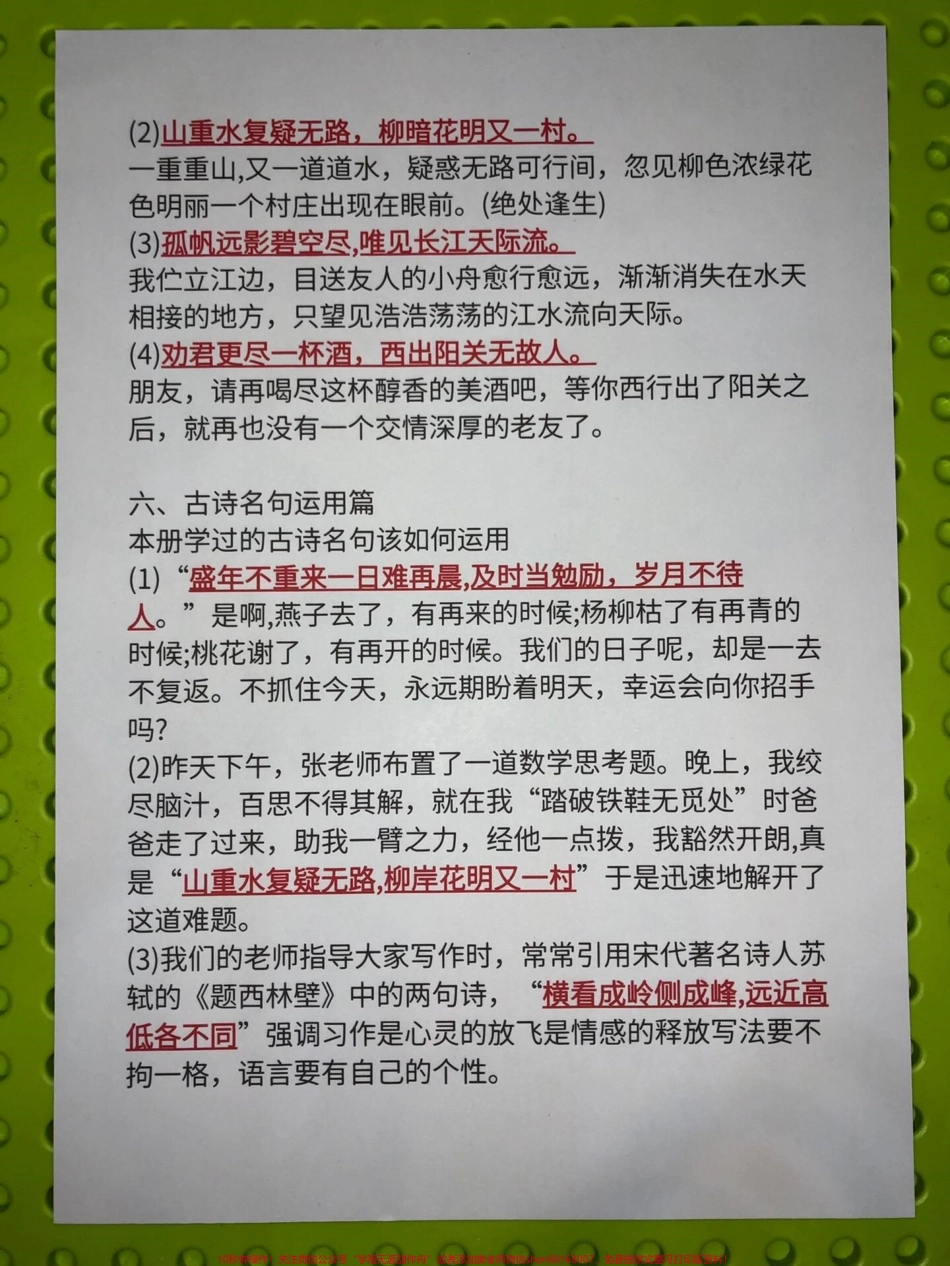 (2)山重水复疑无路，柳暗花明又一村。
一重重山,又一道道水，疑惑无路可行间，忽见柳色浓绿花
色明丽一个村庄出现在眼前。(绝处逢生)
(3)孤帆远影碧空尽,唯见长江天际流。
我伫立江边，目送友人的小舟愈行愈远，渐渐消失在水天
相接的地方，只望见浩浩荡荡的江水流向天际。
(4)劝君更尽一杯酒，西出阳关无故人。
朋友，请再喝尽这杯醇香的美酒吧，等你西行出了阳关之
后，就再也没有一个交情深厚的老友了。
六、古诗名句运用篇
本册学过的古诗名句该如何运用
(1)“盛年不重来一日难再晨,及时当勉励，岁月不待
人。”是啊,燕子去了，有再来的时候;杨柳枯了有再青的
时候;桃花谢了，有再开的时候。我们的日子呢，却是一去
不复返。不抓住今天，永远期盼着明天，幸运会向你招手
吗?
(2)昨天下午，张老师布置了一道数学思考题。晚上，我绞
尽脑汁，百思不得其解，就在我“踏破铁鞋无觅处”时爸
爸走了过来，助我一臂之力，经他一点拨，我豁然开朗,真
是“山重水复疑无路,柳岸花明又一村”于是迅速地解开了
这道难题。
(3)我们的老师指导大家写作时，常常引用宋代著名诗人苏
轼的《题西林壁》中的两句诗，“横看成岭侧成峰,远近高
低各不同”强调习作是心灵的放飞是情感的释放写法要不
拘一格，语言要有自己的个性。